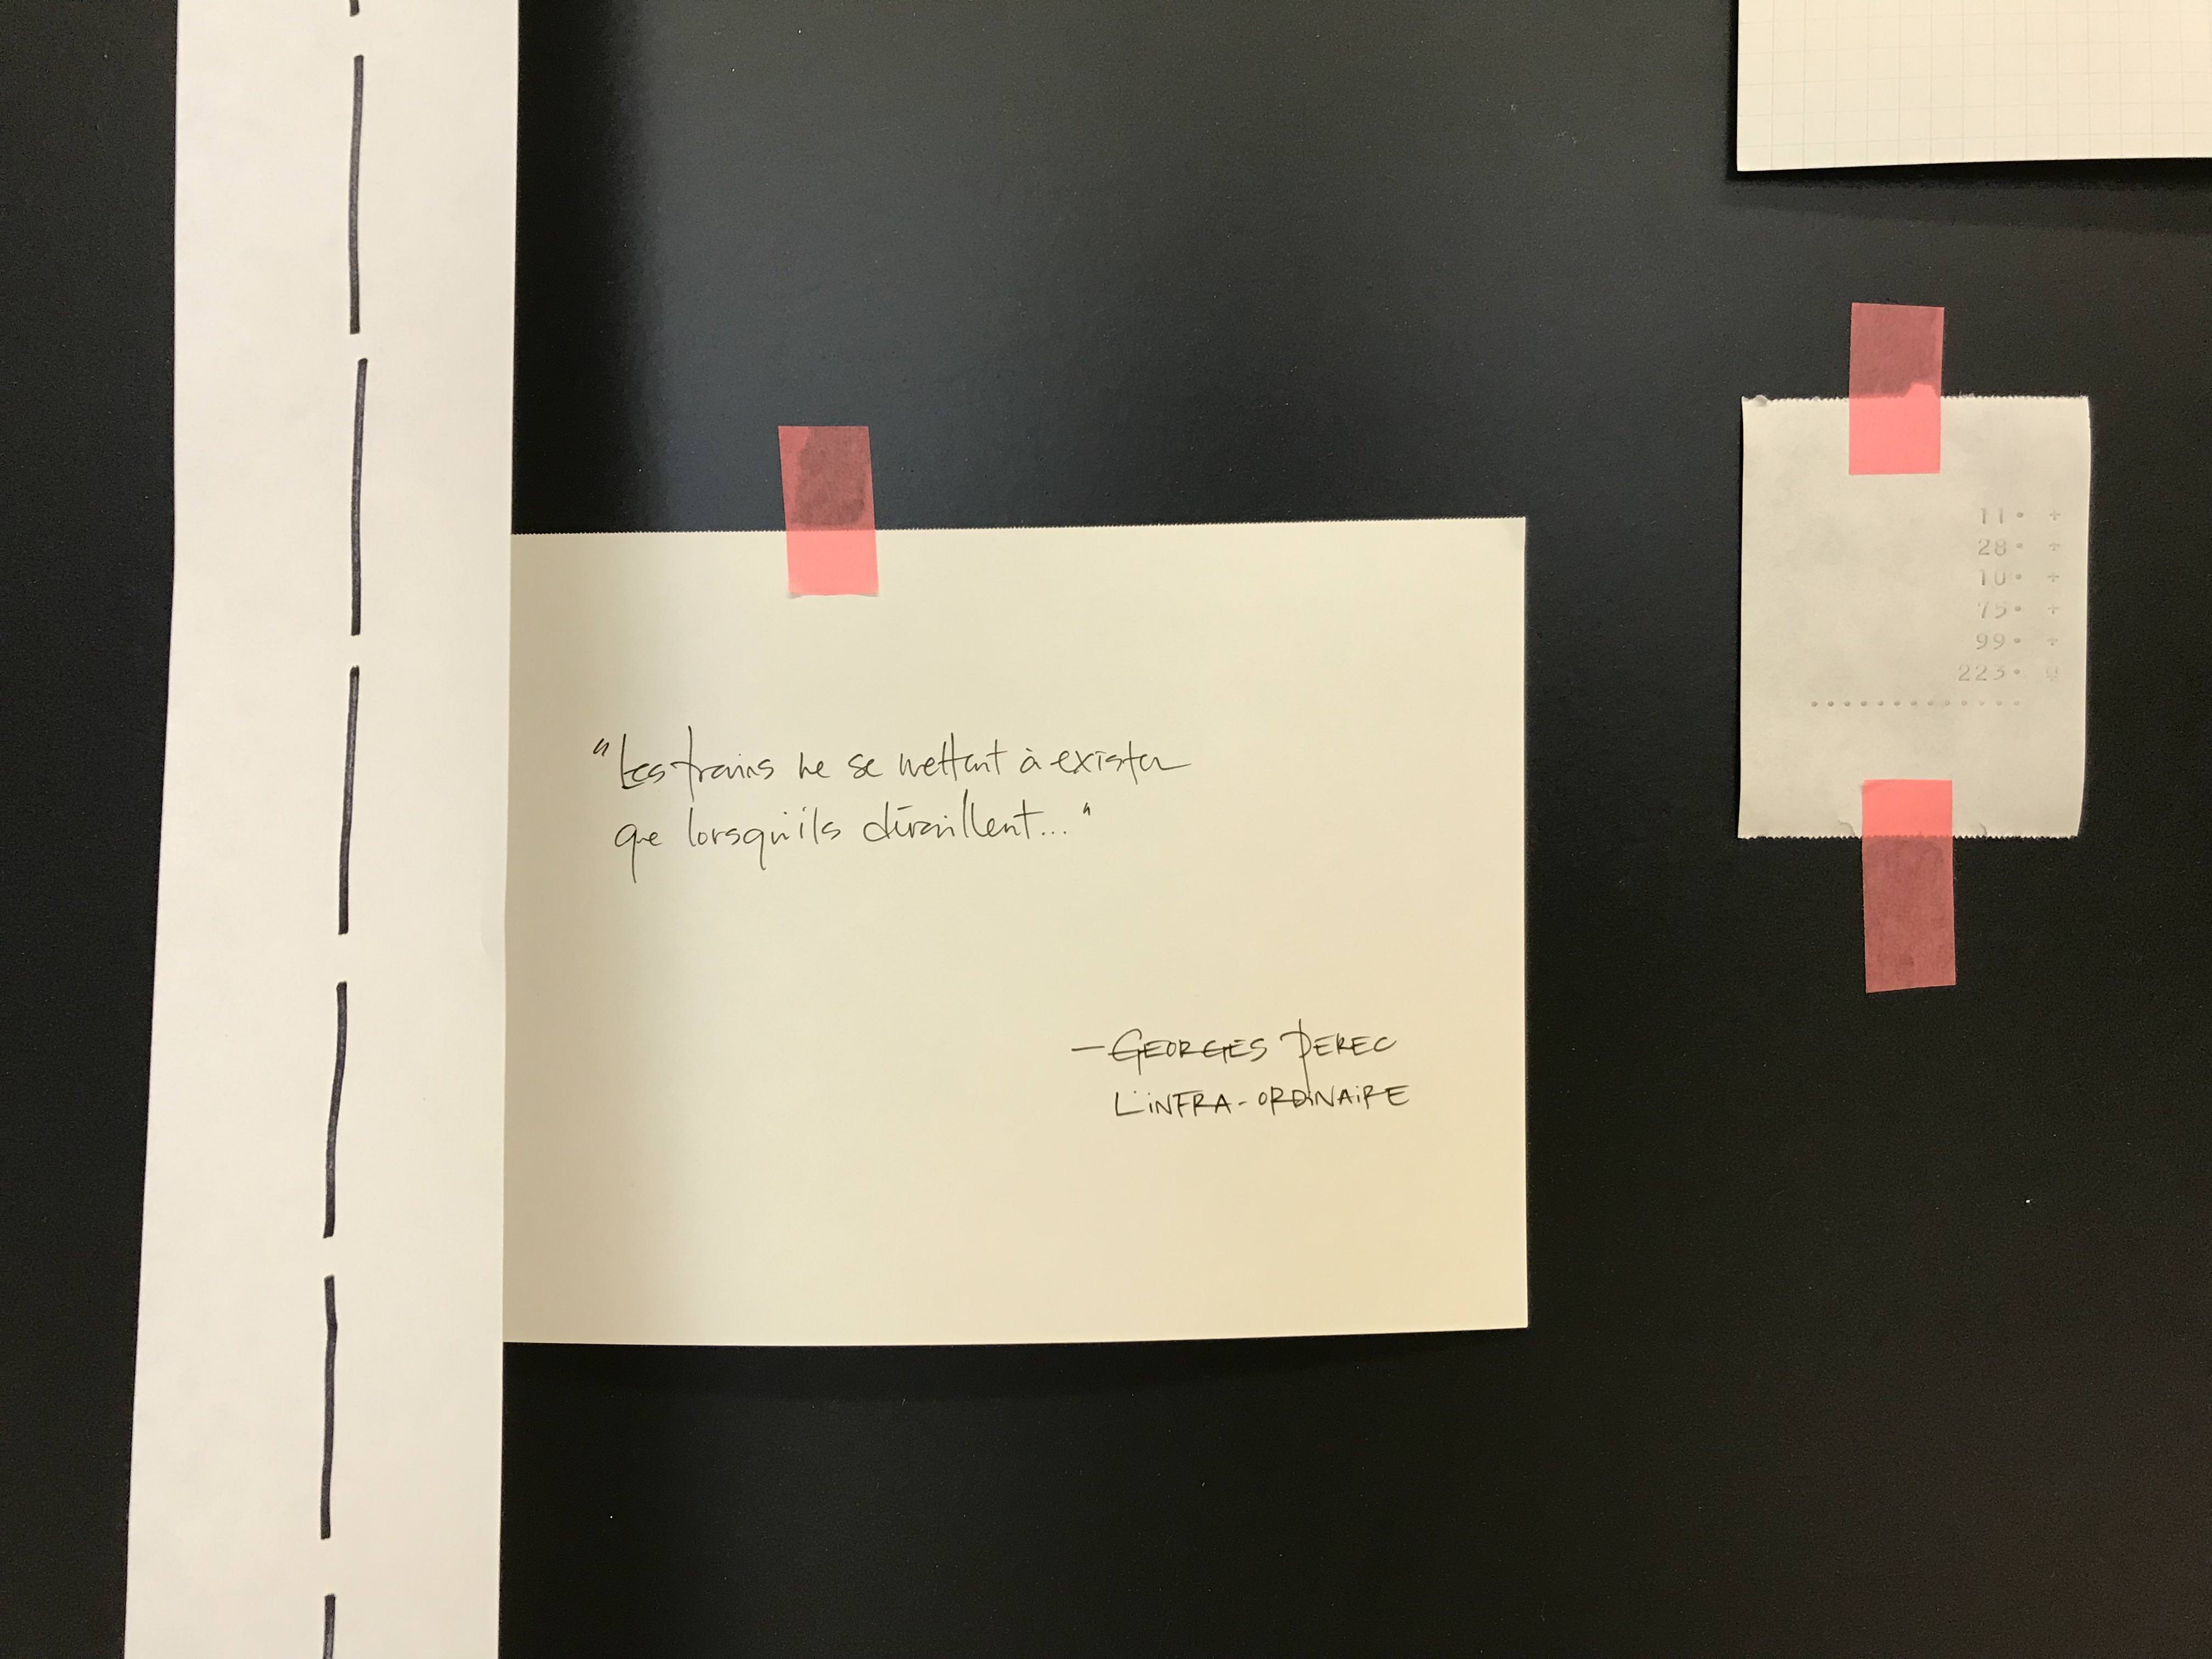 "Les trains ne se mettent à exister
que lorsqu'ils déraillent..."
— GEORGES PEREC
L'INFRA-ORDINAIRE
11• ÷
28• ÷
10• ÷
75• ÷
99• ÷
223•